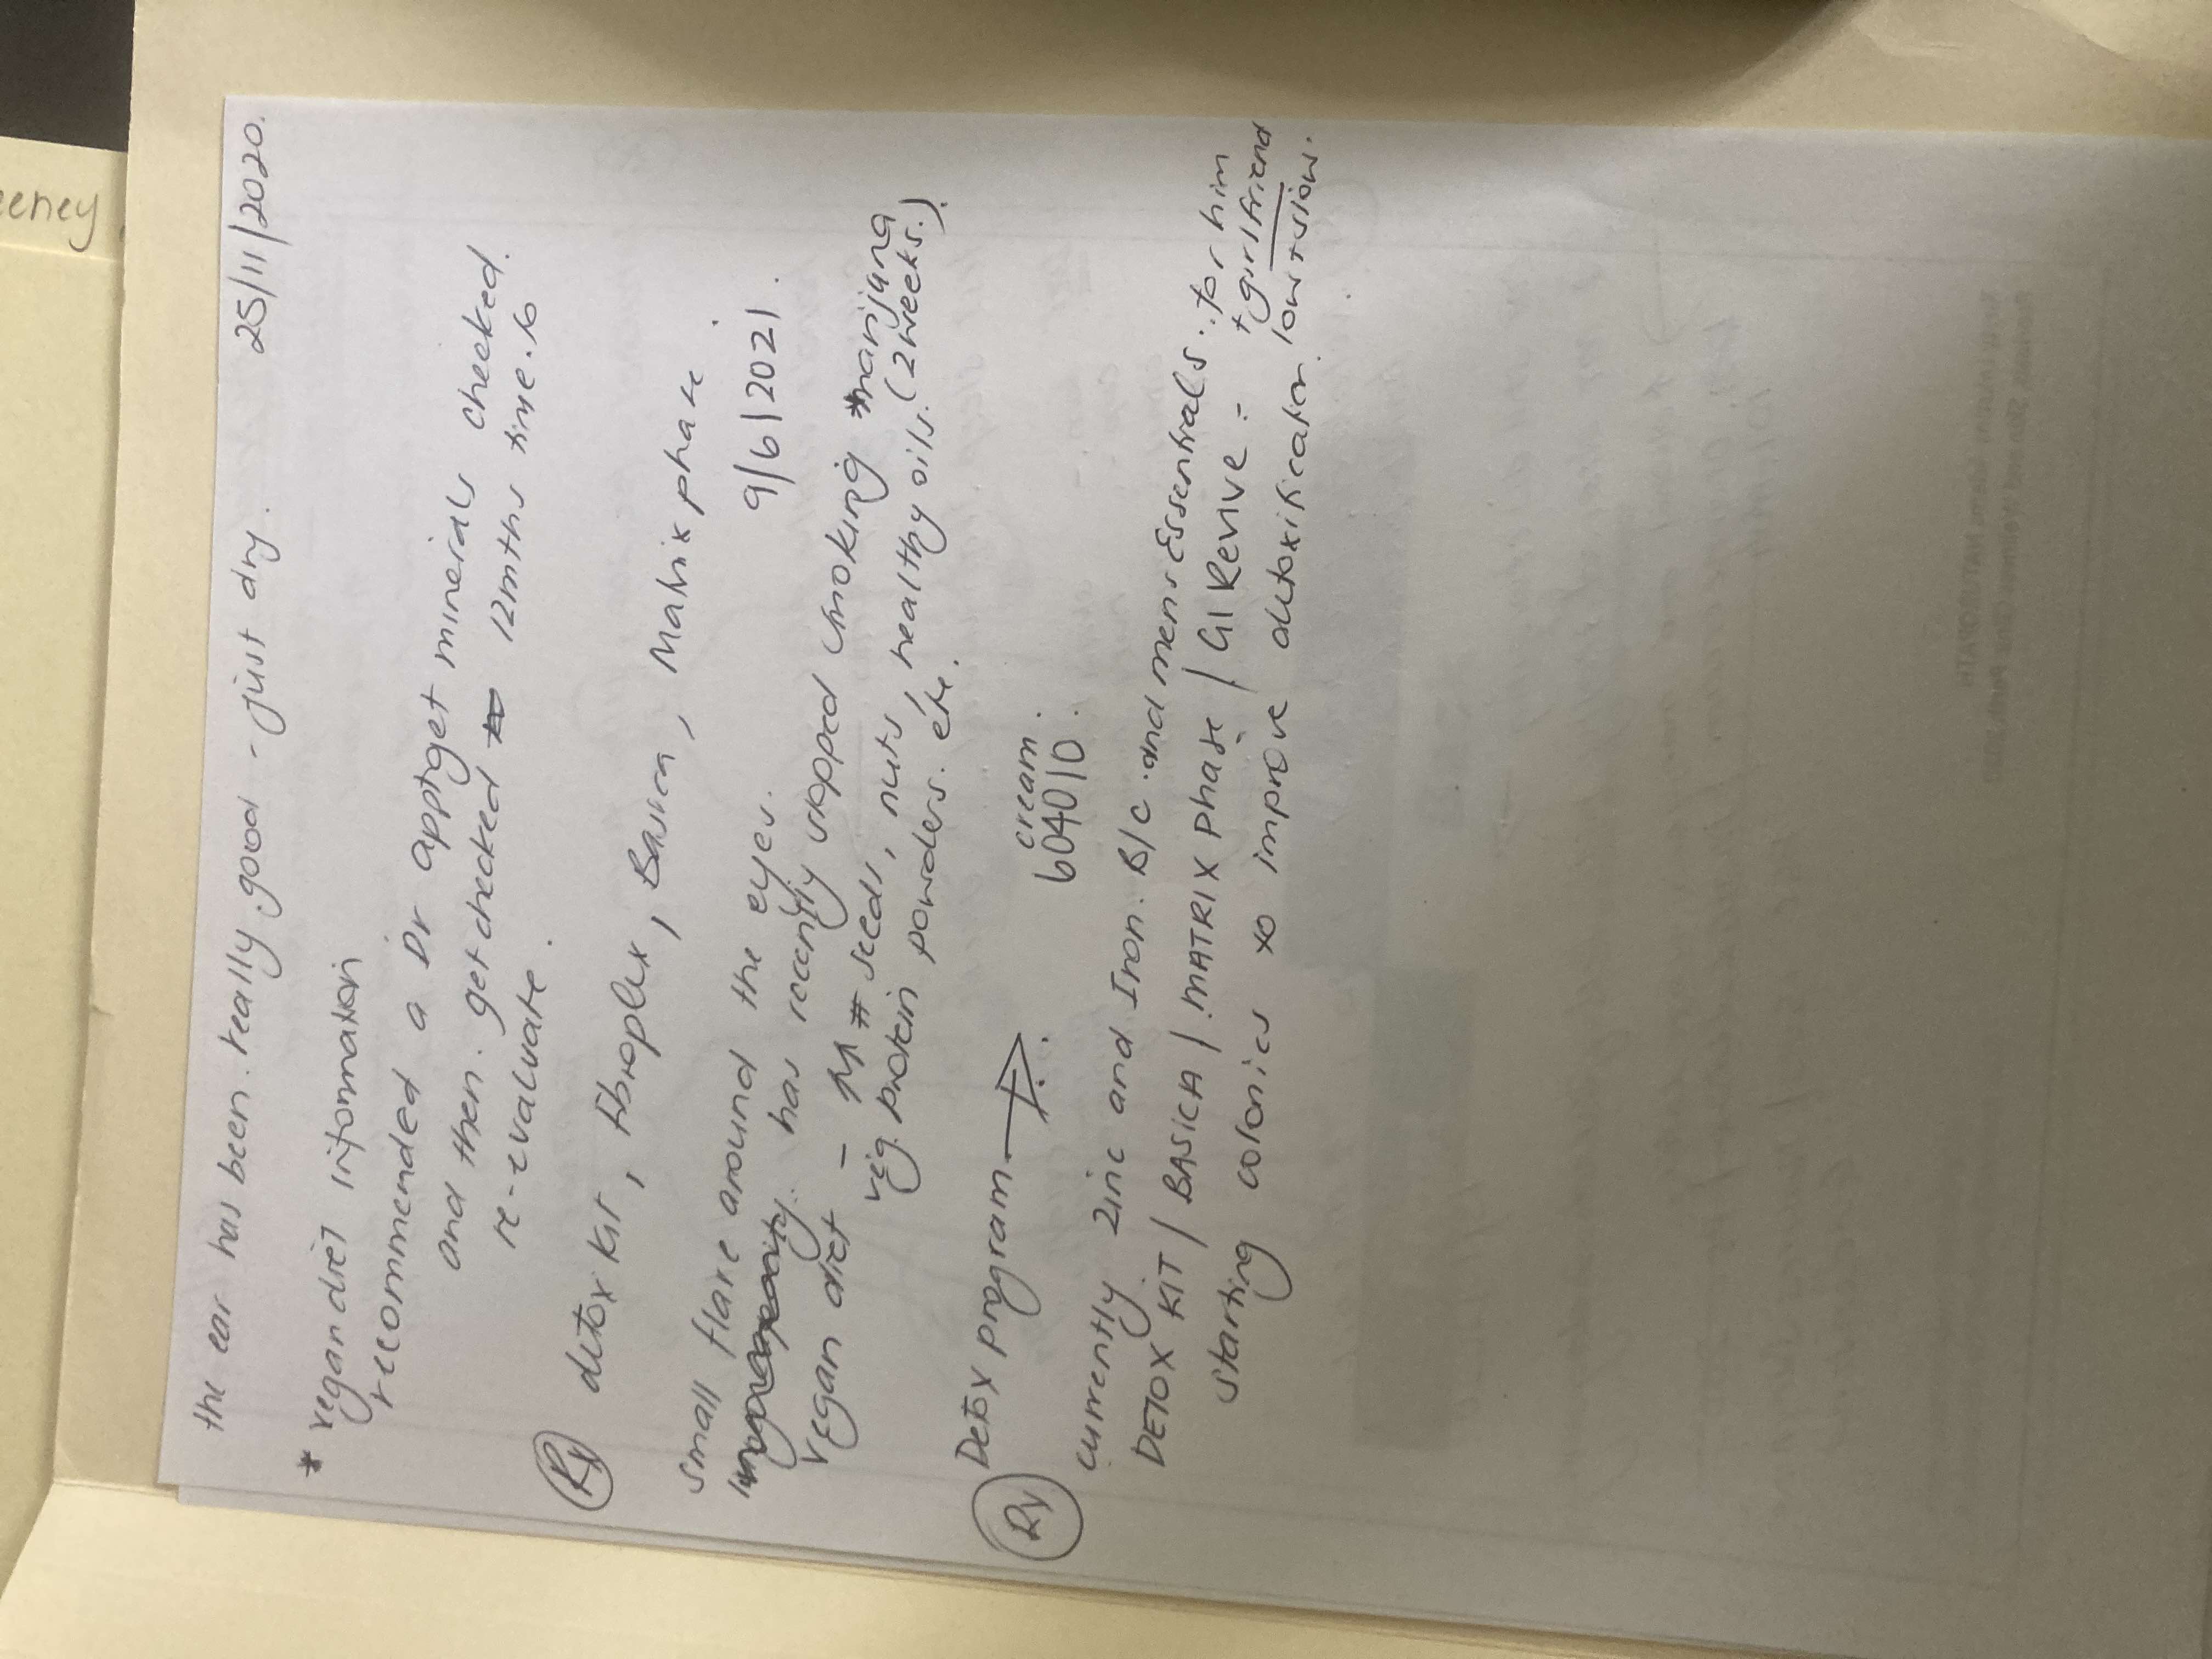 eeney
the ear has been really good - just dry. 25/11/2020.
* vegan diet information
recommended a Dr appt get minerals checked.
and then get checked 12mths time. to
re-evaluate.
Rx detox kit, fibroplex, Basica, Matrix phase.
9/6/2021.
small flare around the eyes.
has recently stopped smoking *marijuana
vegan diet - # seeds, nuts, healthy oils. (2 weeks.).
veg. protein powders. etc.
Rx Detox program → cream.
604010.
currently zinc and Iron. B/c and mens Essentials. for him
DETOX KIT / BASICA / MATRIX Phase / GI Revive = + girlfriend
starting colonics to improve detoxification. low + slow.